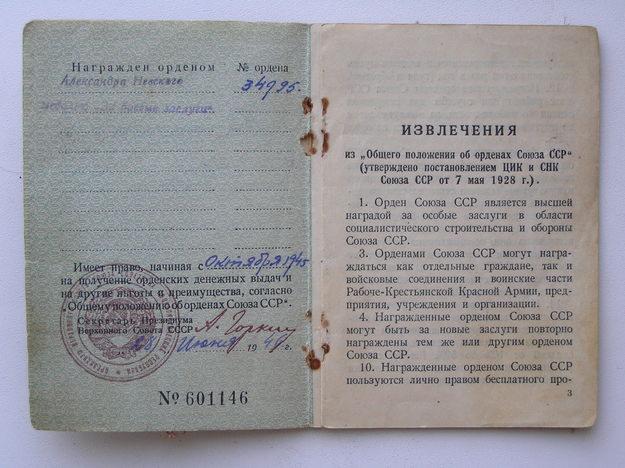 Награжден орденом № ордена
Александра Невского 34995.
медалью „За боевые заслуги"
Имеет право, начиная с Октября 1945
на получение орденских денежных выдач и
на другие льготы и преимущества, согласно
„Общему положению об орденах Союза ССР".
Секретарь Президиума
Верховного Совета СССР А. Горкин
„28" Июня 1948 г.
№ 601146
ИЗВЛЕЧЕНИЯ
из „Общего положения об орденах Союза ССР"
(утверждено постановлением ЦИК и СНК
Союза ССР от 7 мая 1928 г.).
1. Орден Союза ССР является высшей
наградой за особые заслуги в области
социалистического строительства и обороны
Союза ССР.
3. Орденами Союза ССР могут награ-
ждаться как отдельные граждане, так и
войсковые соединения и воинские части
Рабоче-Крестьянской Красной Армии, пред-
приятия, учреждения и организации.
4. Награжденные орденом Союза ССР
могут быть за новые заслуги повторно
награждены тем же или другим орденом
Союза ССР.
10. Награжденные орденом Союза ССР
пользуются лично правом бесплатного про-
3